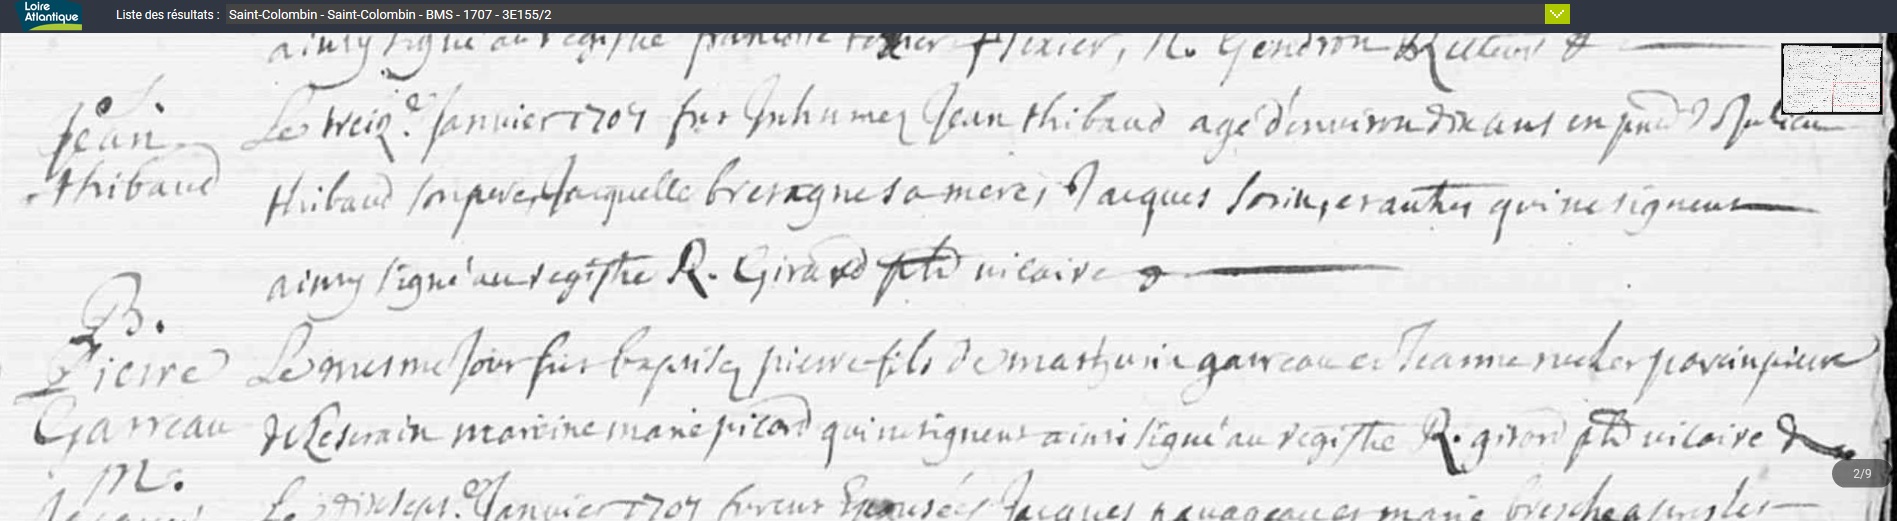 Loire Atlantique
Liste des résultats : Saint-Colombin - Saint-Colombin - BMS - 1707 - 3E155/2
ainsy signé au registre francoise texier, R. Gendron Recteur
S.
Jean
thibaud
Le treiz.e Janvier 1707 fut Inhumez Jean thibaud agé d'environ dix ans en Julien
thibaud son pere, Jacquette bretagne sa mere, Jacques Sorin, et autres qui ne signent
ainsy signé au registre R. Girard ptre vicaire
B.
Pierre
Garreau
Le mesme Jour fut baptisez pierre fils de mathurin garreau et Jeanne parein pierre
mareine marie picard qui ne signent ainsi signé au registre R. girard ptre vicaire
M.
Jacques
Le dix sept.e Janvier 1707 furent Epousées Jacques et marie
2/9